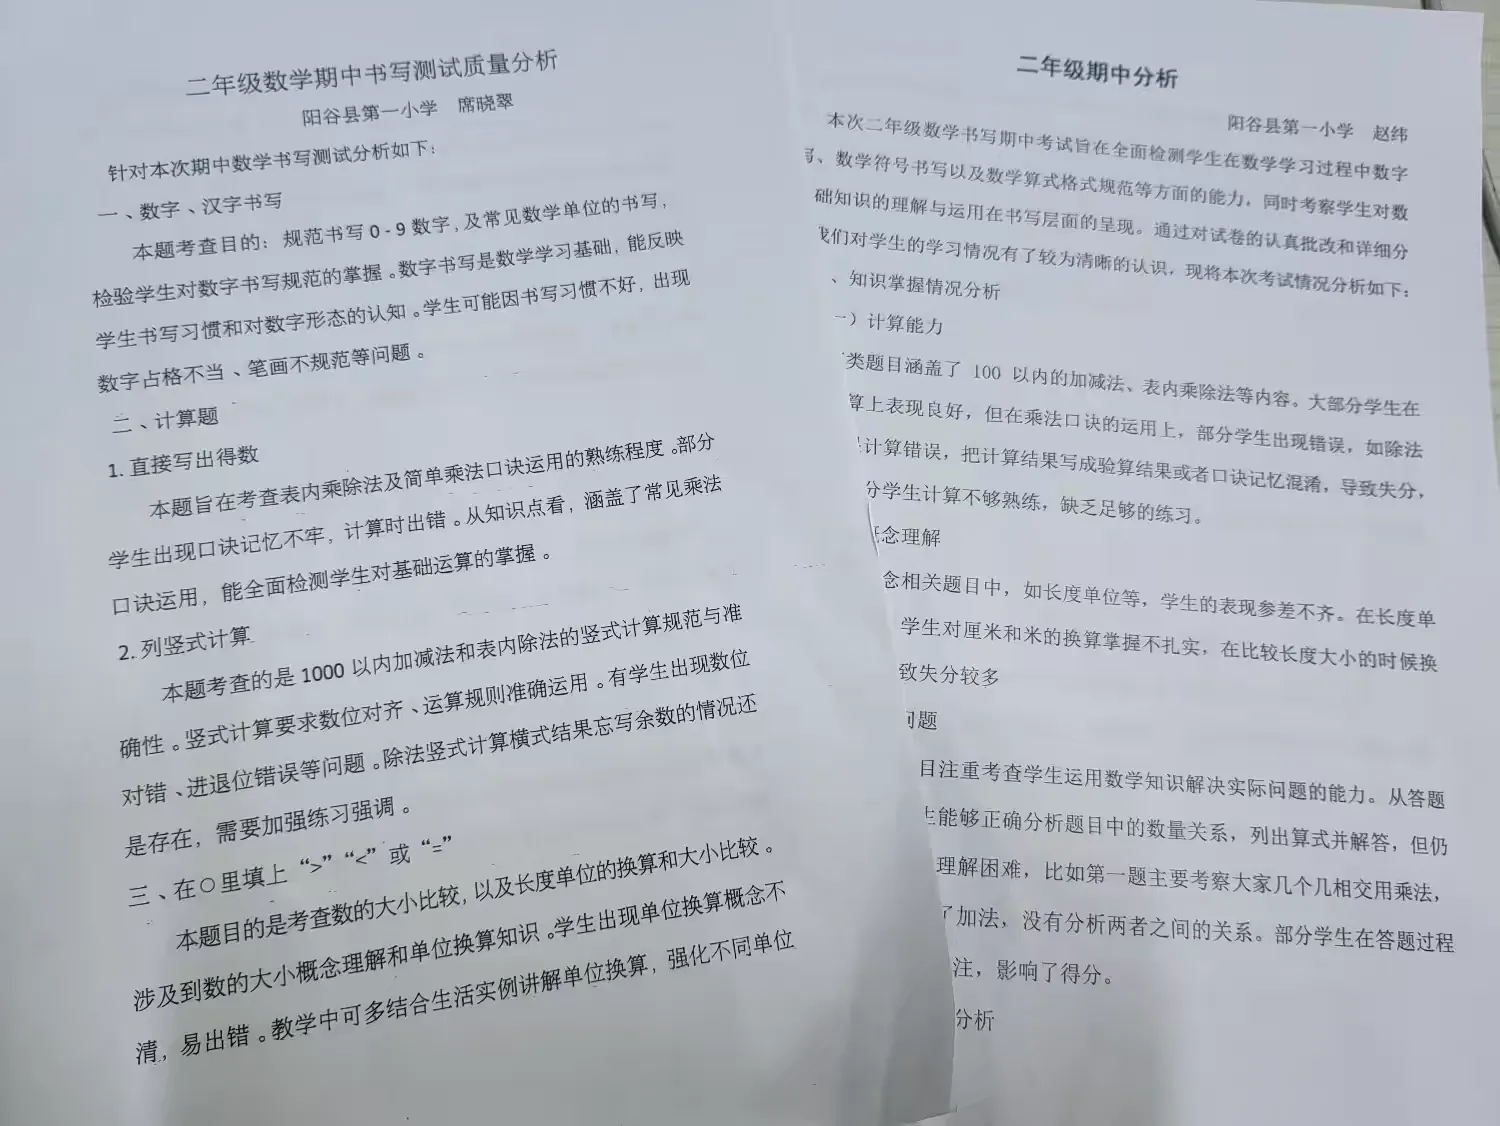 二年级数学期中书写测试质量分析
阳谷县第一小学 席晓翠
针对本次期中数学书写测试分析如下：
一、数字、汉字书写
本题考查目的：规范书写0-9数字，及常见数学单位的书写，
检验学生对数字书写规范的掌握。数字书写是数学学习基础，能反映
学生书写习惯和对数字形态的认知。学生可能因书写习惯不好，出现
数字占格不当、笔画不规范等问题。
二、计算题
1.直接写出得数
本题旨在考查表内乘除法及简单乘法口诀运用的熟练程度。部分
学生出现口诀记忆不牢，计算时出错。从知识点看，涵盖了常见乘法
口诀运用，能全面检测学生对基础运算的掌握。
2.列竖式计算
本题考查的是1000以内加减法和表内除法的竖式计算规范与准
确性。竖式计算要求数位对齐、运算规则准确运用。有学生出现数位
对错、进退位错误等问题。除法竖式计算横式结果忘写余数的情况还
是存在，需要加强练习强调。
三、在○里填上“>”“<”或“=”
本题目的是考查数的大小比较，以及长度单位的换算和大小比较。
涉及到数的大小概念理解和单位换算知识。学生出现单位换算概念不
清，易出错。教学中可多结合生活实例讲解单位换算，强化不同单位
二年级期中分析
阳谷县第一小学 赵纬
本次二年级数学书写期中考试旨在全面检测学生在数学学习过程中数字
写、数学符号书写以及数学算式格式规范等方面的能力，同时考察学生对数
础知识的理解与运用在书写层面的呈现。通过对试卷的认真批改和详细分
我们对学生的学习情况有了较为清晰的认识，现将本次考试情况分析如下：
、知识掌握情况分析
一）计算能力
类题目涵盖了 100 以内的加减法、表内乘除法等内容。大部分学生在
算上表现良好，但在乘法口诀的运用上，部分学生出现错误，如除法
计算错误，把计算结果写成验算结果或者口诀记忆混淆，导致失分，
分学生计算不够熟练，缺乏足够的练习。
概念理解
念相关题目中，如长度单位等，学生的表现参差不齐。在长度单
学生对厘米和米的换算掌握不扎实，在比较长度大小的时候换
致失分较多
问题
目注重考查学生运用数学知识解决实际问题的能力。从答题
生能够正确分析题目中的数量关系，列出算式并解答，但仍
理解困难，比如第一题主要考察大家几个几相交用乘法，
了加法，没有分析两者之间的关系。部分学生在答题过程
注，影响了得分。
分析